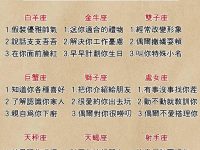 白羊座
金牛座
雙子座
1假裝優雅帥氣
1送你適合的禮物
1經常改變形象
2說話支支吾吾
2解決你工作憂慮
2偶爾撒嬌耍賴
3在你面前臉紅
3早早計劃你生日
3叫你特殊小名
巨蟹座
獅子座
處女座
1知道你各種喜好
1把你介紹給朋友
1有事沒事找你茬
2了解認識你家人
2很愛約你出去玩
2動不動就教訓你
3親自爲你下廚
3偶爾對你很嘮叨
3偶爾不愛搭理你
天秤座
天蠍座
射手座